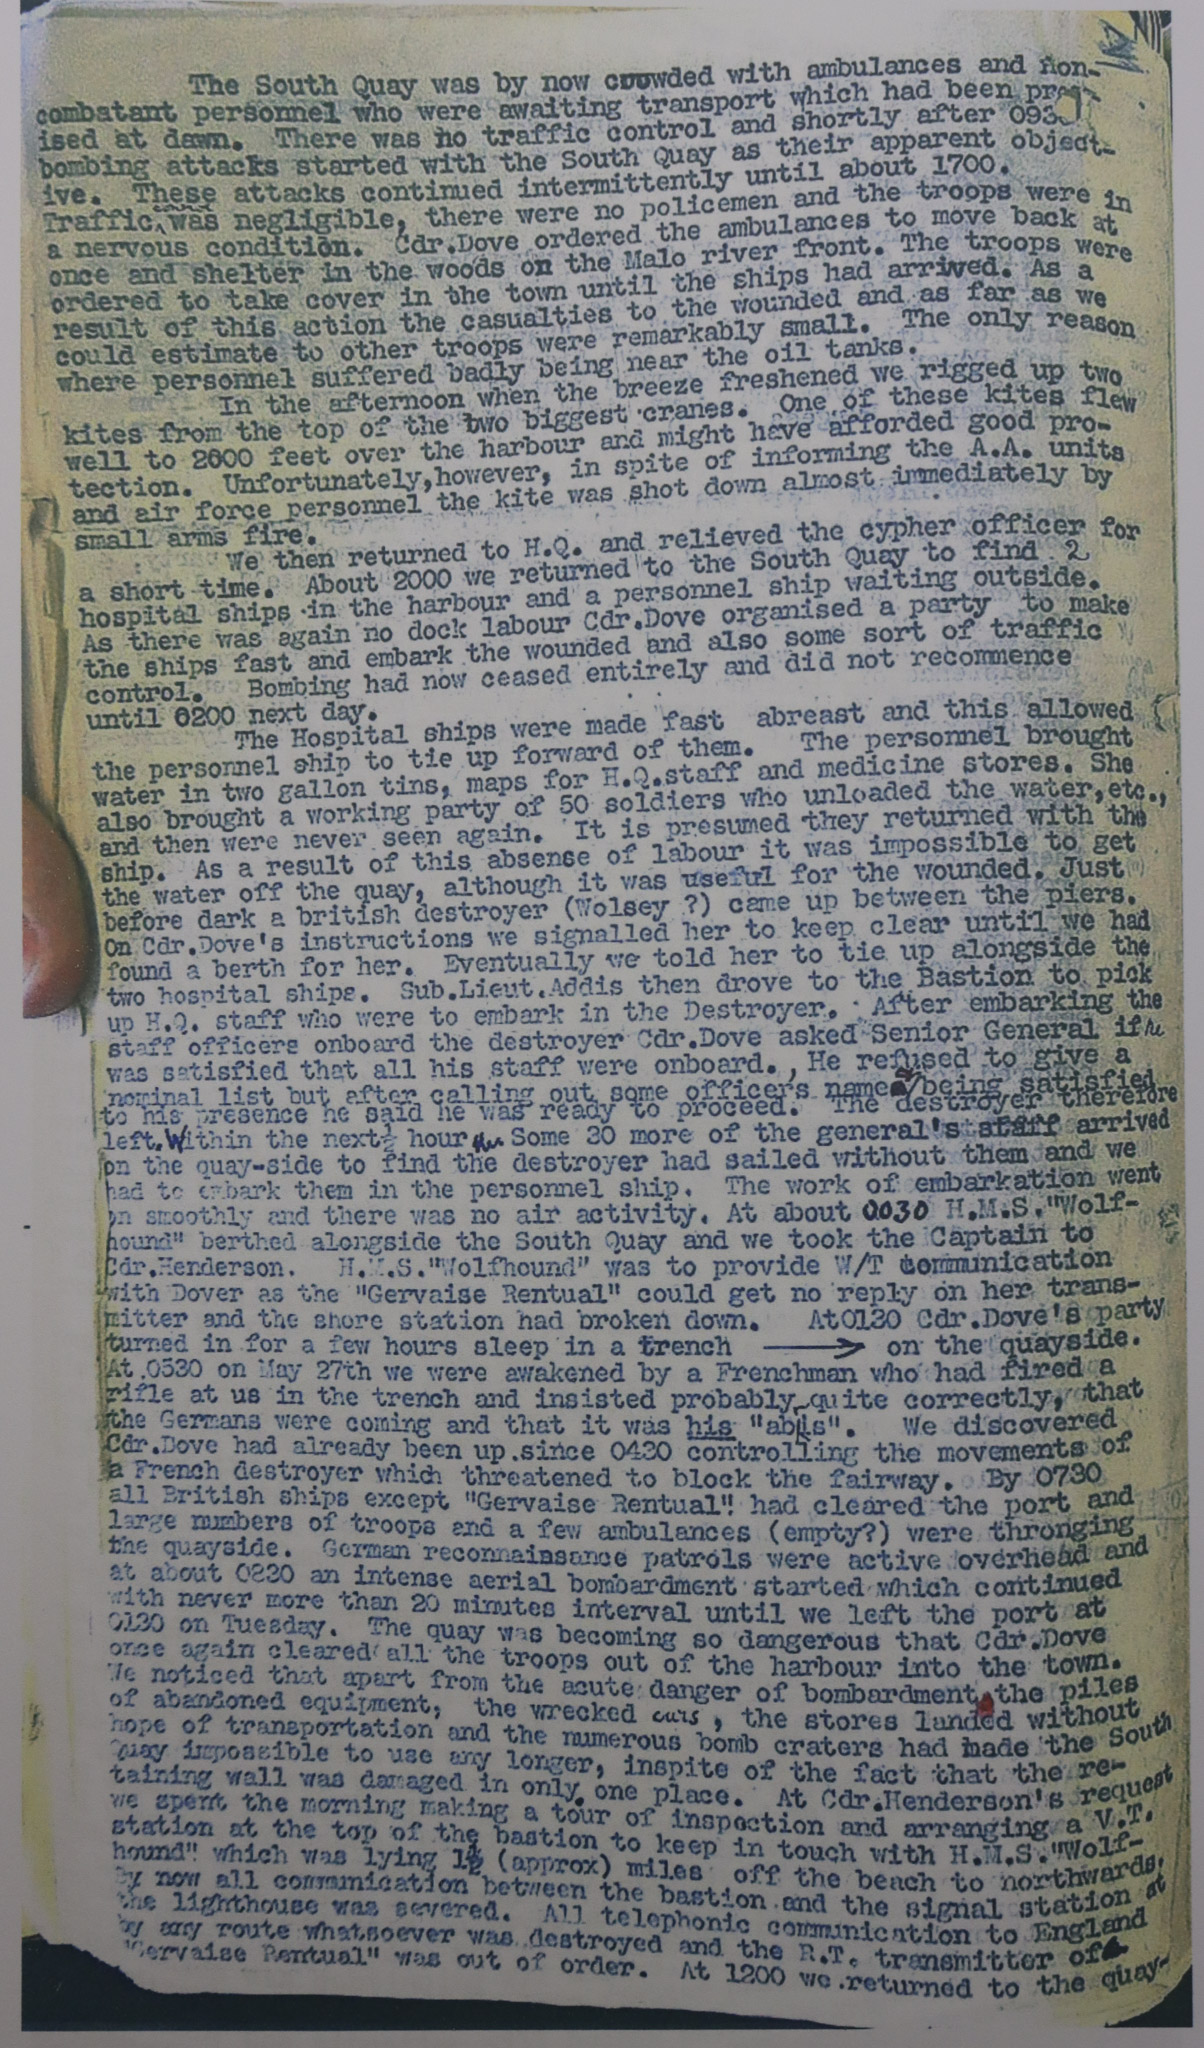 The South Quay was by now crowded with ambulances and non-
combatant personnel who were awaiting transport which had been prom-
ised at dawn. There was no traffic control and shortly after 0930
bombing attacks started with the South Quay as their apparent object-
ive. These attacks continued intermittently until about 1700.
Traffic was negligible, there were no policemen and the troops were in
a nervous condition. Cdr.Dove ordered the ambulances to move back at
once and shelter in the woods on the Malo river front. The troops were
ordered to take cover in the town until the ships had arrived. As a
result of this action the casualties to the wounded and as far as we
could estimate to other troops were remarkably small. The only reason
where personnel suffered badly being near the oil tanks.
In the afternoon when the breeze freshened we rigged up two
kites from the top of the two biggest cranes. One of these kites flew
well to 2000 feet over the harbour and might have afforded good pro-
tection. Unfortunately,however, in spite of informing the A.A. units
and air force personnel the kite was shot down almost immediately by
small arms fire.
We then returned to H.Q. and relieved the cypher officer for
a short time. About 2000 we returned to the South Quay to find 2
hospital ships in the harbour and a personnel ship waiting outside.
As there was again no dock labour Cdr.Dove organised a party to make
the ships fast and embark the wounded and also some sort of traffic
control. Bombing had now ceased entirely and did not recommence
until 0200 next day.
The Hospital ships were made fast abreast and this allowed
the personnel ship to tie up forward of them. The personnel brought
water in two gallon tins, maps for H.Q.staff and medicine stores. She
also brought a working party of 50 soldiers who unloaded the water,etc.,
and then were never seen again. It is presumed they returned with the
ship. As a result of this absense of labour it was impossible to get
the water off the quay, although it was useful for the wounded. Just
before dark a british destroyer (Wolsey ?) came up between the piers.
On Cdr.Dove's instructions we signalled her to keep clear until we had
found a berth for her. Eventually we told her to tie up alongside the
two hospital ships. Sub.Lieut.Addis then drove to the Bastion to pick
up H.Q. staff who were to embark in the Destroyer. After embarking the
staff officers onboard the destroyer Cdr.Dove asked Senior General if he
was satisfied that all his staff were onboard., He refused to give a
nominal list but after calling out some officers names being satisfied
to his presence he said he was ready to proceed. The destroyer therefore
left. Within the next ½ hour Some 30 more of the general's staff arrived
on the quay-side to find the destroyer had sailed without them and we
had to embark them in the personnel ship. The work of embarkation went
on smoothly and there was no air activity. At about 0030 H.M.S."Wolf-
hound" berthed alongside the South Quay and we took the Captain to
Cdr.Henderson. H.M.S."Wolfhound" was to provide W/T communication
with Dover as the "Gervaise Rentual" could get no reply on her trans-
mitter and the shore station had broken down. At 0130 Cdr.Dove's party
turned in for a few hours sleep in a trench → on the quayside.
At 0530 on May 27th we were awakened by a Frenchman who had fired a
rifle at us in the trench and insisted probably quite correctly, that
the Germans were coming and that it was his "abus". We discovered
Cdr.Dove had already been up since 0430 controlling the movements of
a French destroyer which threatened to block the fairway. By 0730
all British ships except "Gervaise Rentual" had cleared the port and
large numbers of troops and a few ambulances (empty?) were thronging
the quayside. German reconnaissance patrols were active overhead and
at about 0830 an intense aerial bombardment started which continued
with never more than 20 minutes interval until we left the port at
0130 on Tuesday. The quay was becoming so dangerous that Cdr.Dove
once again cleared all the troops out of the harbour into the town.
We noticed that apart from the acute danger of bombardment the piles
of abandoned equipment, the wrecked cars, the stores landed without
hope of transportation and the numerous bomb craters had made the South
Quay impossible to use any longer, inspite of the fact that the re-
taining wall was damaged in only one place. At Cdr.Henderson's request
we spent the morning making a tour of inspection and arranging a V.T.
station at the top of the bastion to keep in touch with H.M.S."Wolf-
hound" which was lying 1½ (approx) miles off the beach to northwards.
By now all communication between the bastion and the signal station at
the lighthouse was severed. All telephonic communication to England
by any route whatsoever was destroyed and the R.T. transmitter of
"Gervaise Rentual" was out of order. At 1200 we returned to the quay-